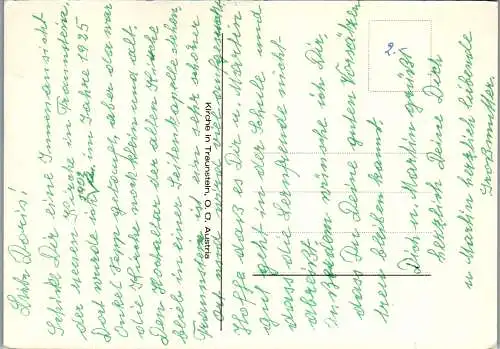 Liebe Doris!
Schicke Dir eine Innenansicht
der neuen Kirche in Traunstein.
Dort wurde im Jahre 1925
Onkel Sepp getauft, aber da war
die Kirche noch klein und alt.
Den Hochaltar der alten Kirche
blieb in einer Seitenkapelle stehen.
Traunstein ist ein sehr schöner
Ort und wird viel
Kirche in Traunstein, O. Ö. Austria
Hoffe daß es Dir u. Martin
gut geht in der Schule und
dass die Lernfreude nicht
abreißt.
Außerdem wünsche ich Dir,
dass Du Deine guten Vorsätzen
treu bleiben kannst.
Dich u. Martin grüßt
herzlich Deine Dich
u Martin herzlich liebende
Großmutter.
2.-